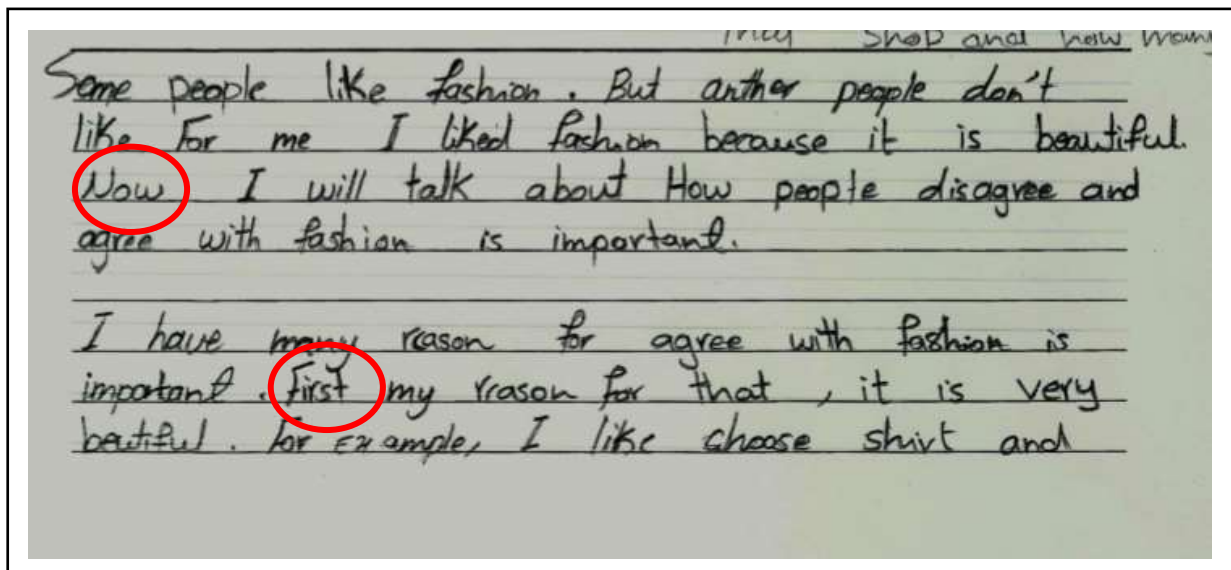 They shop and how many
Some people like fashion. But anther people don't
like For me I liked fashion because it is beautiful.
Now I will talk about How people disagree and
agree with fashion is important.
I have many reason for agree with fashion is
important. First my reason for that, it is very
beutiful. For Example, I like choose shirt and